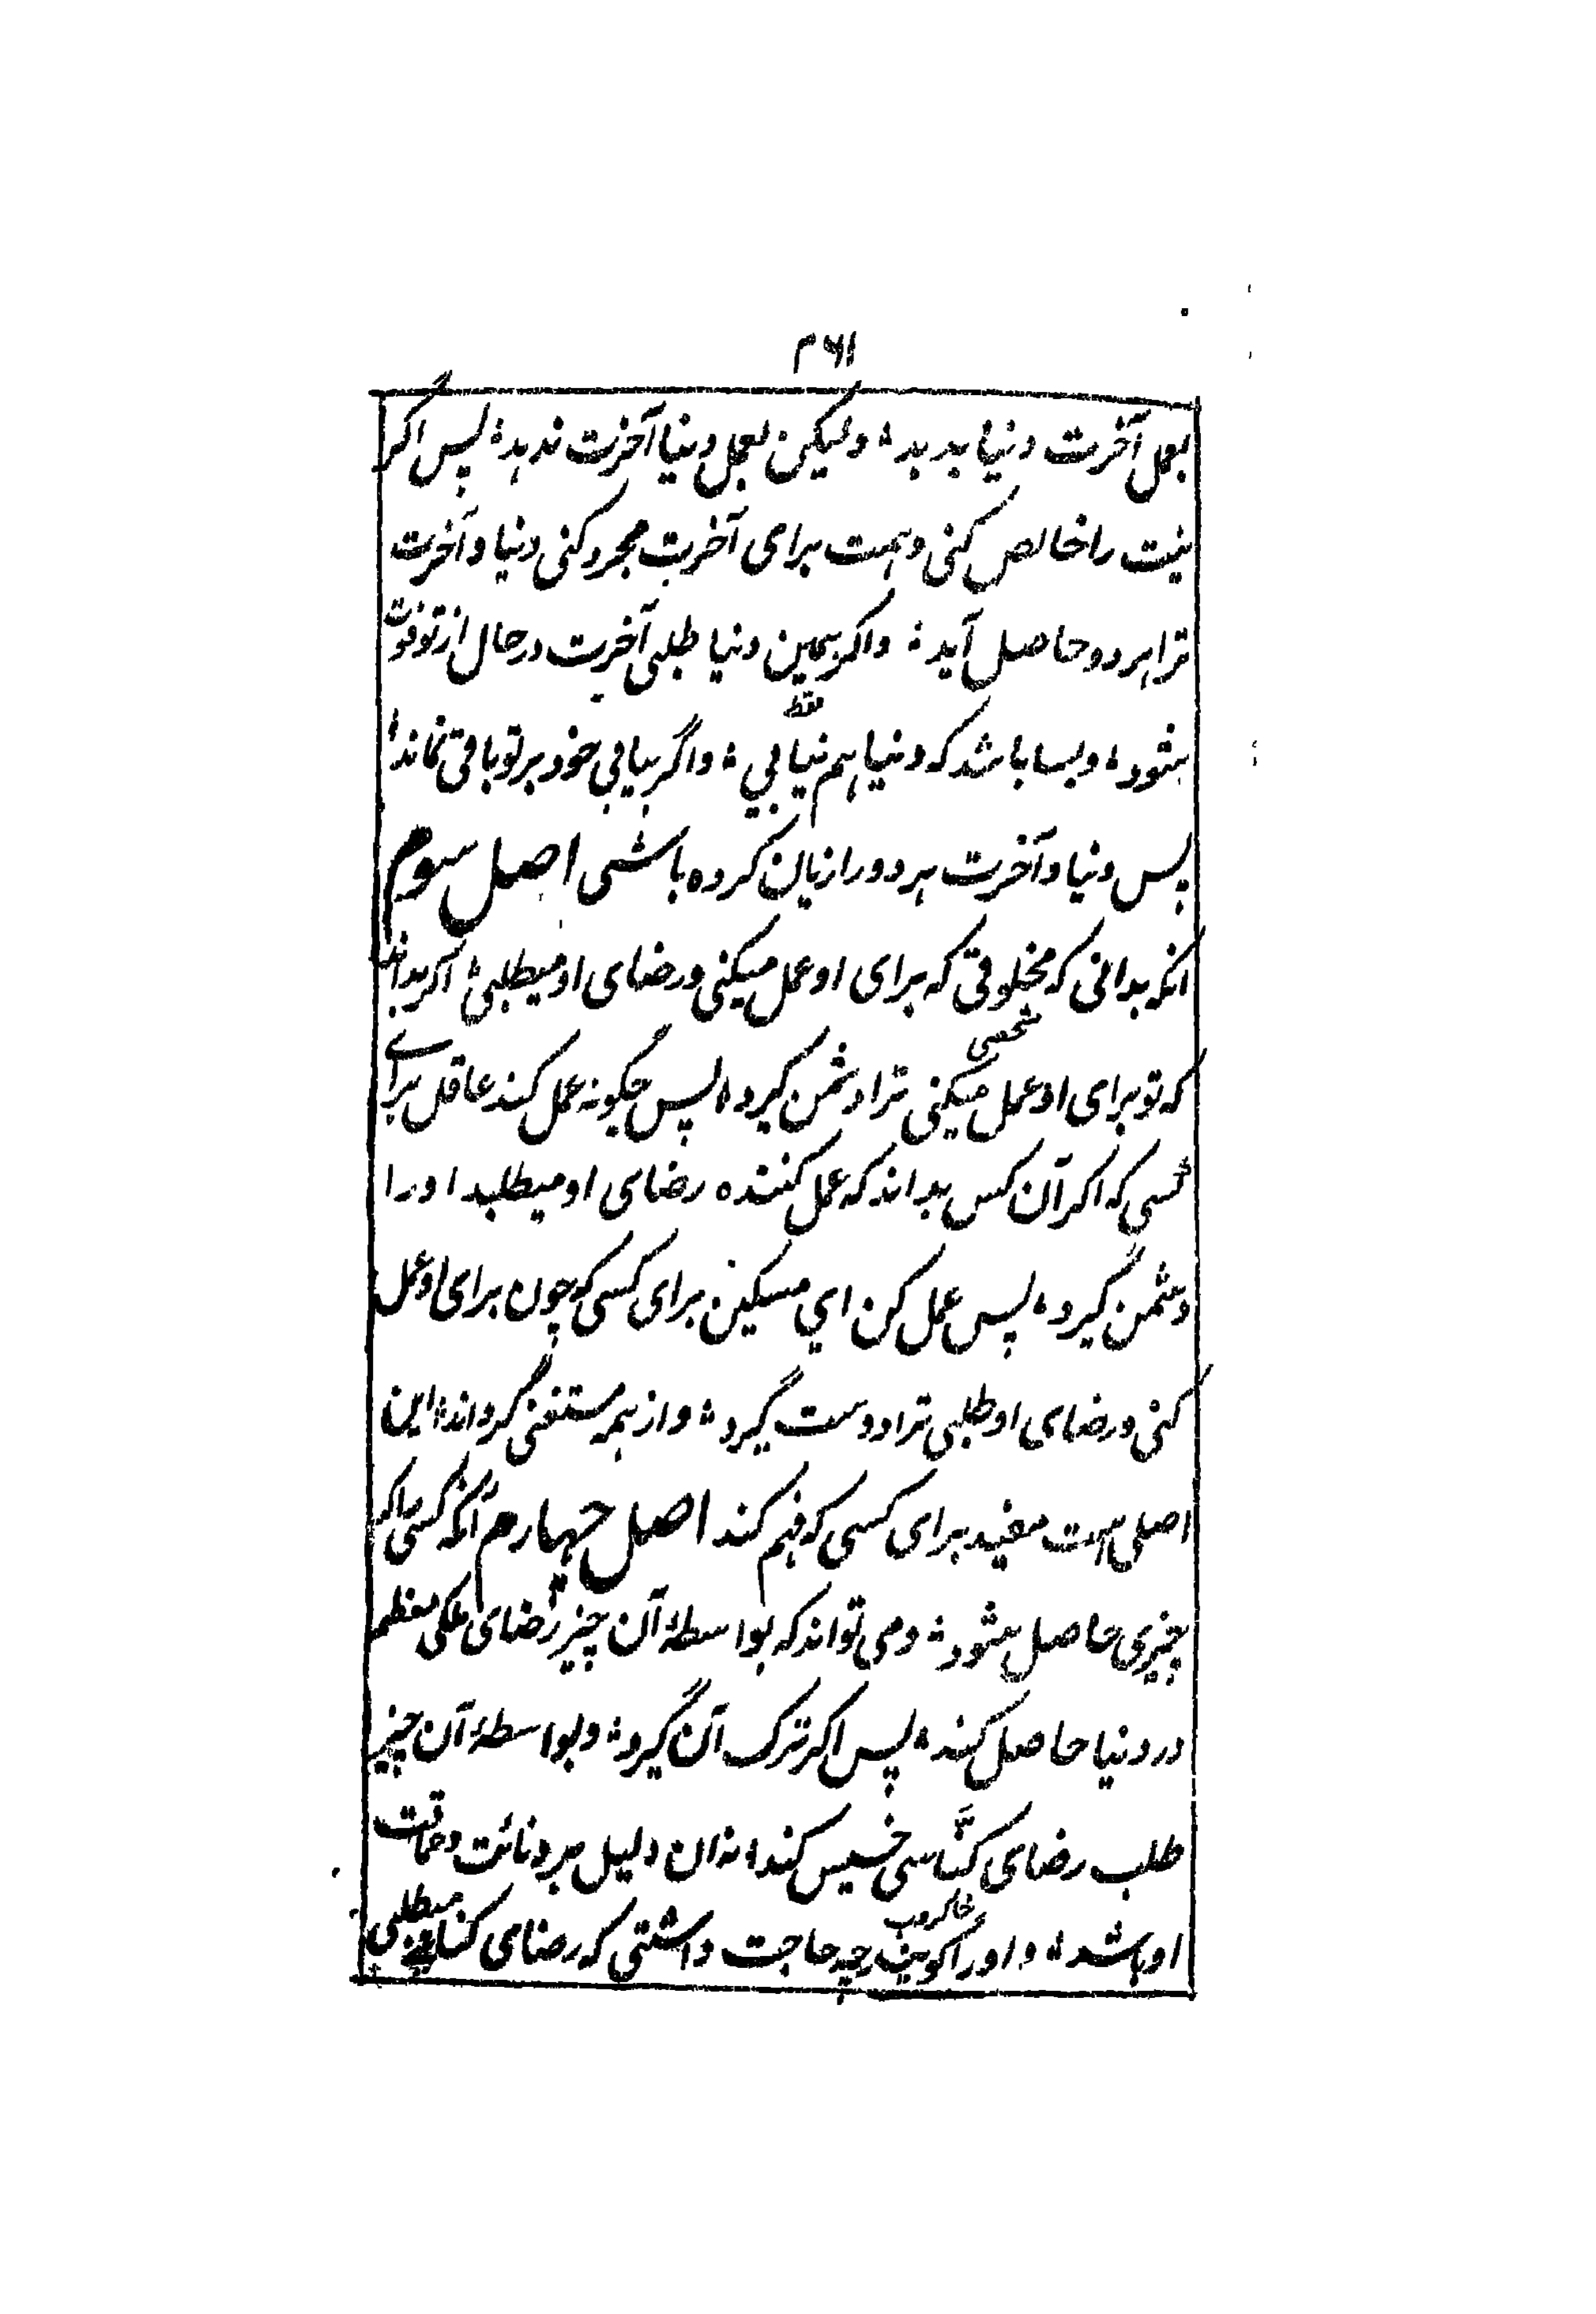 ۴۶۱
بعمل آخرت دنیا بدهد؛ ولیکن بعمل دنیا آخرت ندهد؛ پس اگر
نیت را خالص کنی و همت برای آخرت مجرد کنی دنیا و آخرت
ترا هر دو حاصل آید؛ و اکر همین دنیا طلبی آخرت در حال از تو فوت
بشود؛ و بسا باشد که دنیا هم نیابی؛ و اگر بیابی خود بر تو باقی نماند؛
فقط
پس دنیا و آخرت هر دو را زیان کرده باشی اصل سوم
آنکه بدانی که مخلوقی که برای او عمل میکنی و رضای او میطلبی؛ اکر بداند
که تو برای او عمل میکنی ترا دشمن کیرد؛ پس چگونه عمل کند عاقل برای
شخصی
کسی که اکر آن کس بداند که عمل کننده رضای او میطلبد او را
دشمن گیرد؛ پس عمل کن اي مسکین برای کسی که چون برای او عمل
کنی و رضای او طلبی ترا دوست گیرد؛ و از همه مستغنی گرداند؛ این
اصلی است مفید برای کسی که فهم کند اصل چهارم آنکه کسی را که
چیزی حاصل بشود؛ و می تواند که بواسطهٔ آن چیز رضای ملکی معظم
در دنیا حاصل کند؛ پس اکر ترک آن گیرد؛ و بواسطهٔ آن چیز
طلب رضای کنّاسی خسیس کند؛ نه ان دلیل بر دنائت و حماقت
او باشد؛ و او را کویند چه حاجت داشتی که رضای کناس میطلبی
خاکروب